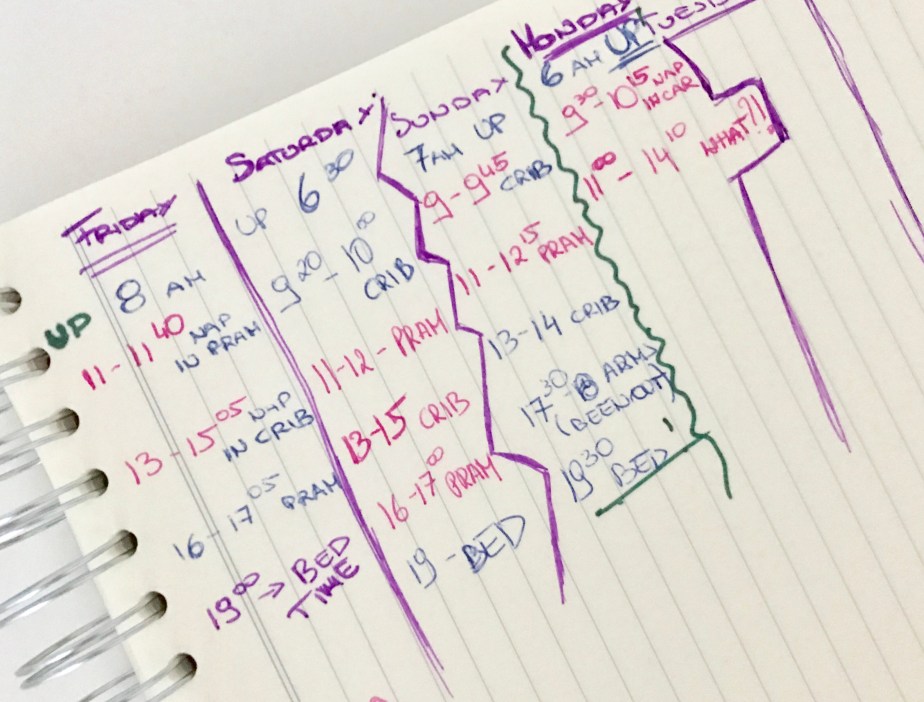 FRIDAY
UP 8 AM
11 - 11 40 NAP
IN PRAM
13 - 15 05 NAP
IN CRIB
16 - 17 05 PRAM
19 00 → BED
TIME
SATURDAY
UP 6 30
9 20 - 10 00
CRIB
11-12 - PRAM
13-15 CRIB
16-17 00 PRAM
19 - BED
SUNDAY
7 AM UP
9 - 9 45
CRIB
11 - 12 15 PRAM
13-14 CRIB
17 30 ARM
(BEEN OUT)
19 30 BED
MONDAY
6 AM UP!
9 30 - 10 15 NAP
IN CAR
11 00 - 14 10 WHAT?!